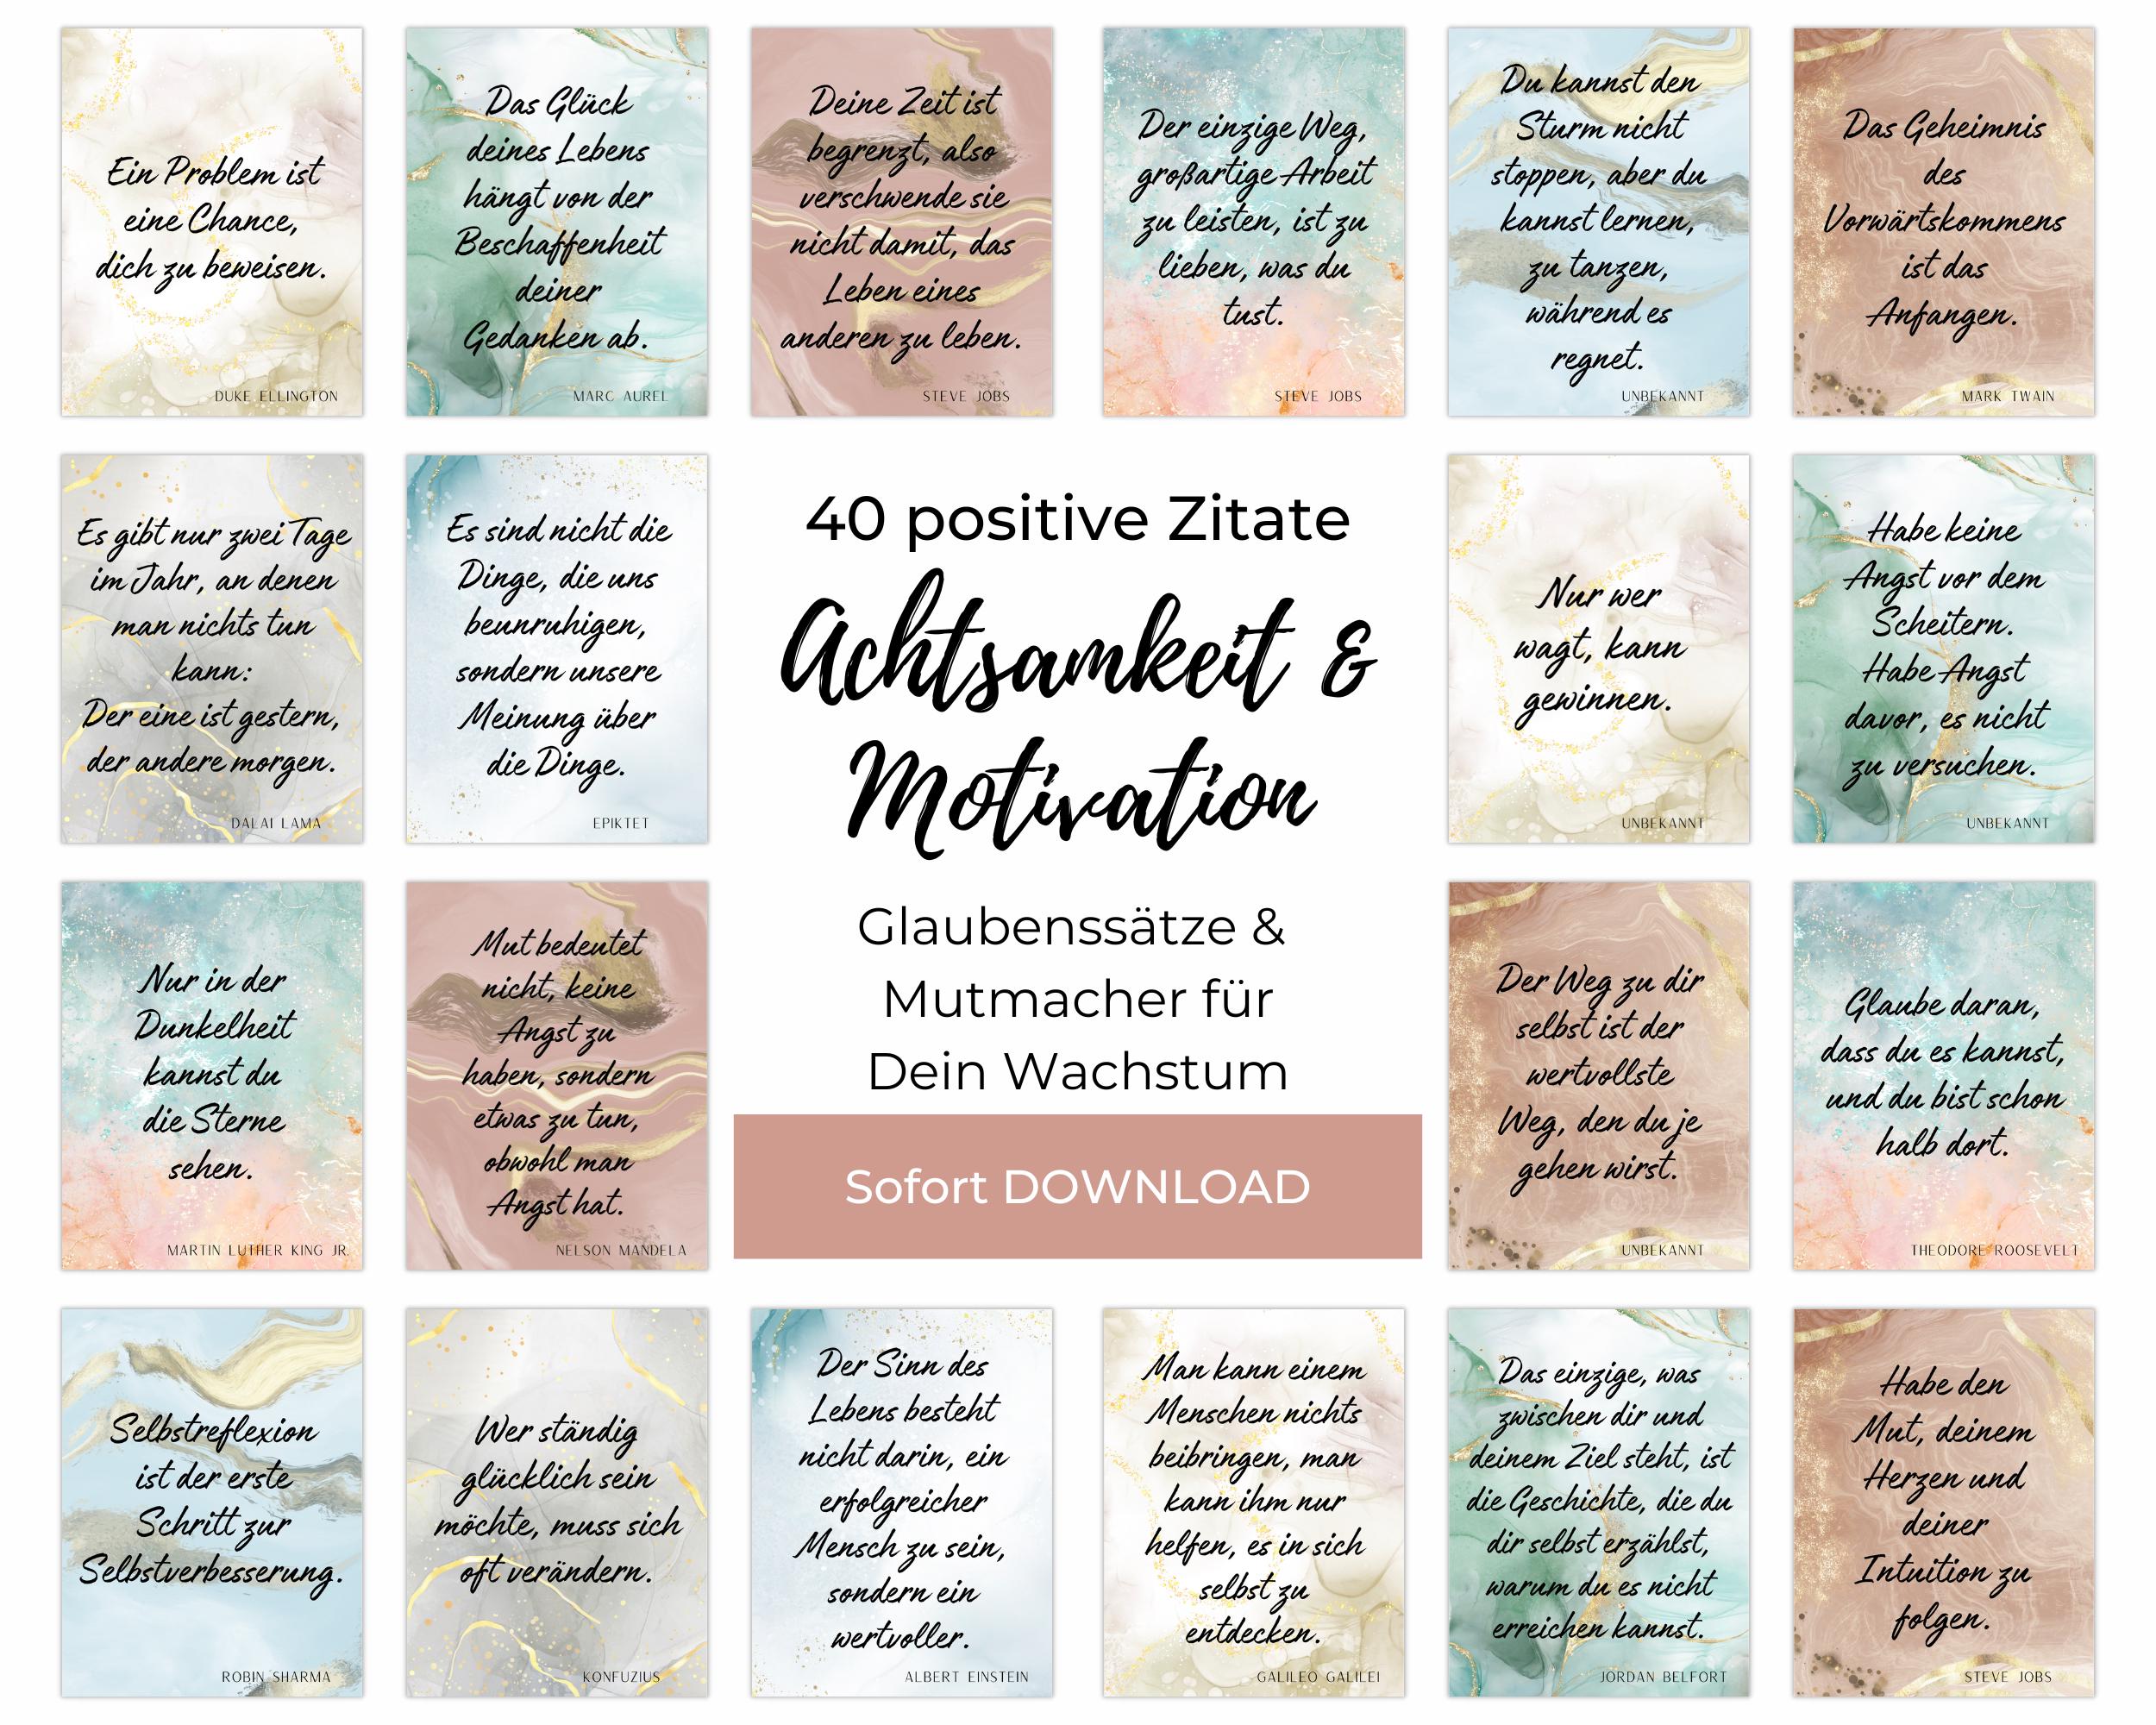 Ein Problem ist
eine Chance,
dich zu beweisen.
DUKE ELLINGTON
Das Glück
deines Lebens
hängt von der
Beschaffenheit
deiner
Gedanken ab.
MARC AUREL
Deine Zeit ist
begrenzt, also
verschwende sie
nicht damit, das
Leben eines
anderen zu leben.
STEVE JOBS
Der einzige Weg,
großartige Arbeit
zu leisten, ist zu
lieben, was du
tust.
STEVE JOBS
Du kannst den
Sturm nicht
stoppen, aber du
kannst lernen,
zu tanzen,
während es
regnet.
UNBEKANNT
Das Geheimnis
des
Vorwärtskommens
ist das
Anfangen.
MARK TWAIN
Es gibt nur zwei Tage
im Jahr, an denen
man nichts tun
kann:
Der eine ist gestern,
der andere morgen.
DALAI LAMA
Es sind nicht die
Dinge, die uns
beunruhigen,
sondern unsere
Meinung über
die Dinge.
EPIKTET
40 positive Zitate
Achtsamkeit &
Motivation
Glaubenssätze &
Mutmacher für
Dein Wachstum
Sofort DOWNLOAD
Nur wer
wagt, kann
gewinnen.
UNBEKANNT
Habe keine
Angst vor dem
Scheitern.
Habe Angst
davor, es nicht
zu versuchen.
UNBEKANNT
Nur in der
Dunkelheit
kannst du
die Sterne
sehen.
MARTIN LUTHER KING JR.
Mut bedeutet
nicht, keine
Angst zu
haben, sondern
etwas zu tun,
obwohl man
Angst hat.
NELSON MANDELA
Der Weg zu dir
selbst ist der
wertvollste
Weg, den du je
gehen wirst.
UNBEKANNT
Glaube daran,
dass du es kannst,
und du bist schon
halb dort.
THEODORE ROOSEVELT
Selbstreflexion
ist der erste
Schritt zur
Selbstverbesserung.
ROBIN SHARMA
Wer ständig
glücklich sein
möchte, muss sich
oft verändern.
KONFUZIUS
Der Sinn des
Lebens besteht
nicht darin, ein
erfolgreicher
Mensch zu sein,
sondern ein
wertvoller.
ALBERT EINSTEIN
Man kann einem
Menschen nichts
beibringen, man
kann ihm nur
helfen, es in sich
selbst zu
entdecken.
GALILEO GALILEI
Das einzige, was
zwischen dir und
deinem Ziel steht, ist
die Geschichte, die du
dir selbst erzählst,
warum du es nicht
erreichen kannst.
JORDAN BELFORT
Habe den
Mut, deinem
Herzen und
deiner
Intuition zu
folgen.
STEVE JOBS